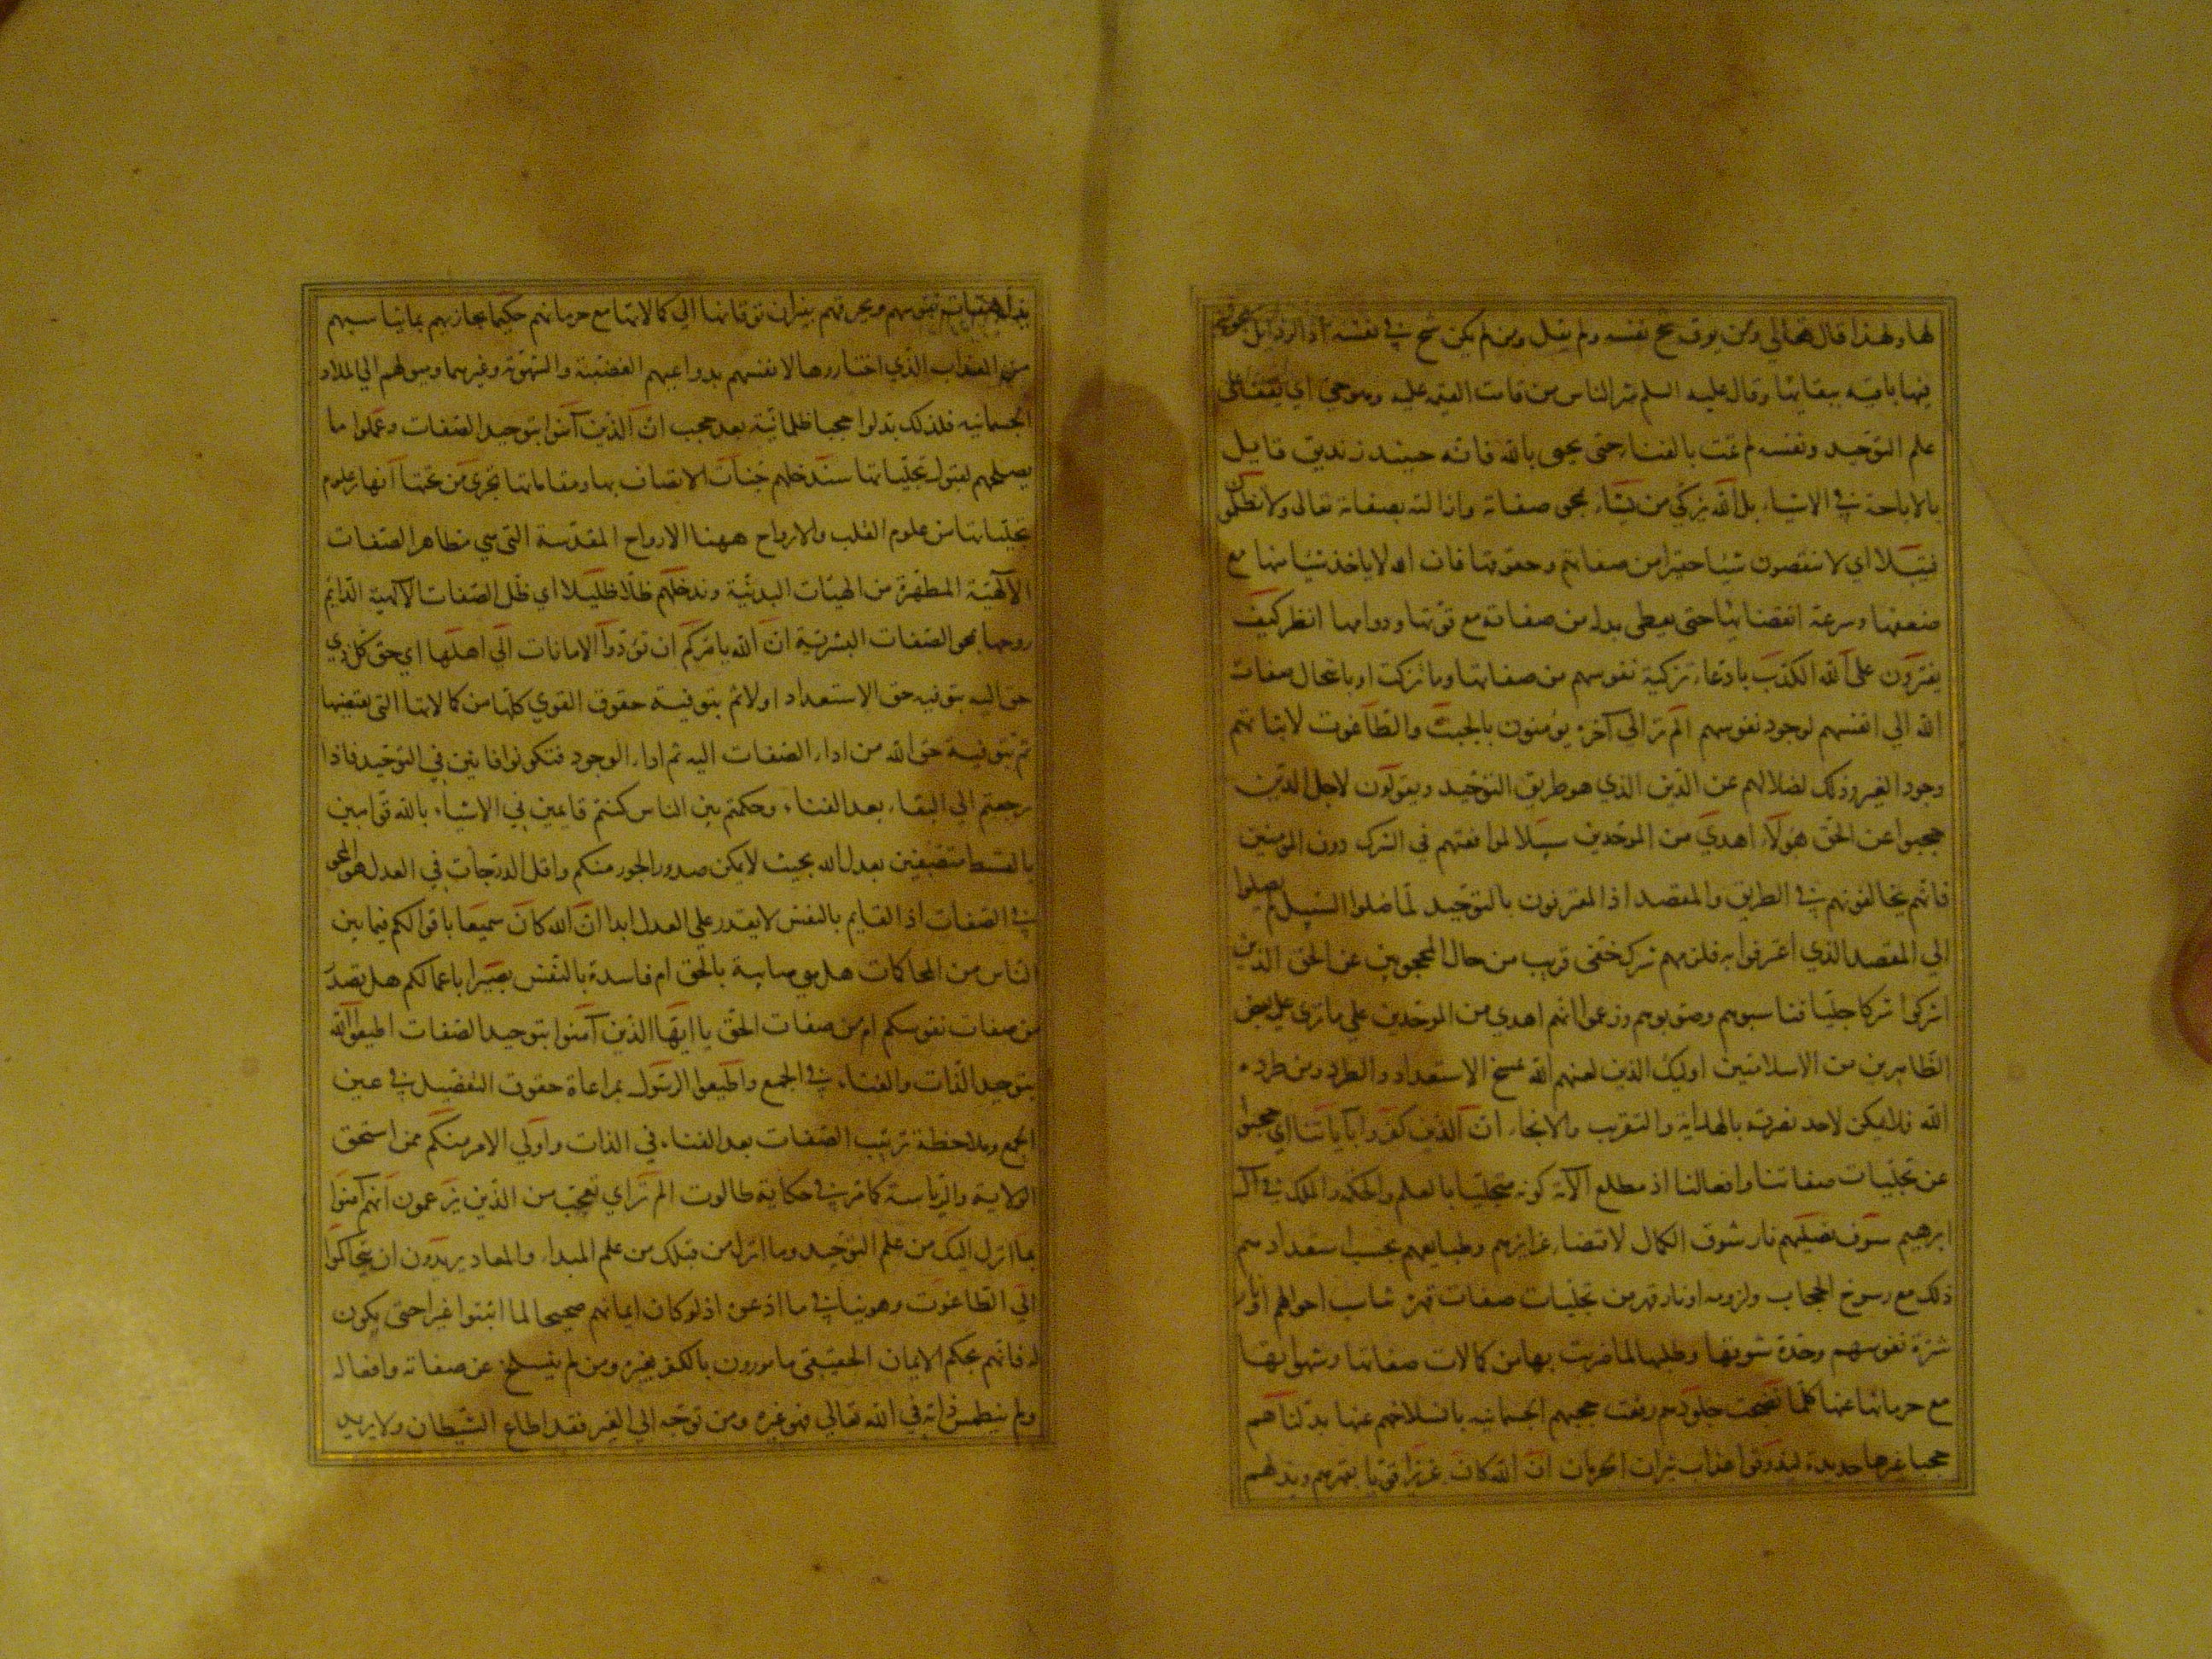 لها ولهذا قال تعالى ومن يوق شح نفسه ولم يقل ومن لم يكن شح في نفسه اذ الرذايل
فيها باقيه ببقايها وقال عليه السلم شر الناس من قامت القيمه عليه وهو حي اي يقف على
علم التوحيد ونفسه لم تمت بالفناء حتى يحيى بالله فانه حينئذ زنديق قايل
بالاباحة في الاشياء بل الله يزكي من يشاء بمحو صفاته وازالته بصفاته تعالى ولا يظلمون
فتيلا اي لا ينقصون شيئا حقيرا من صفاتهم وحقوقها فان الله لا ياخذ شيئا منها مع
ضعفها وسرعة انقضائها حتى يعطي بدله من صفاته مع قوتها ودوامها انظر كيف
يفترون على الله الكذب بادعاء تزكية نفوسهم من صفاتها وما تزكت او بانتحال صفات
الله الي انفسهم لوجود نفوسهم الم تر الى آخره يؤمنون بالجبت والطاغوت لاثباتهم
وجود الغير وذلك لضلالهم عن الدين الذي هو طريق التوحيد ويقولون لاجل الذين
حجبوا عن الحق هؤلاء اهدي من الموحدين سبيلا لموافقتهم في الشرك دون المومنين
فانهم يخالفونهم في الطريق والمقصد اذ المعترفون بالتوحيد لما ضلوا السبيل لم يصلوا
الي المقصد الذي اعترفوا به فلزمهم شرك خفي قريب من حال المحجوبين عن الحق الذين
اشركوا شركا جليا فناسبوهم وصوبوهم وزعموا انهم اهدي من الموحدين علي ما تري عليه بعض
الظاهريين من الاسلاميين اوليك الذين لعنهم الله بمسخ الاستعداد والطرد ومن طرده
الله فلا يمكن لاحد نصرته بالهداية والتقريب والانجاء ان الذين كفروا باياتنا اي حجبوا
عن تجليات صفاتنا وافعالنا اذ مطلع الآية كونه متجليا بالعلم والحكمة والملك في آل
ابرهيم سوف نصليهم نار شوق الكمال لاقتضاء غرايزهم وطبايعهم بحسب استعدادهم
ذلك مع رسوخ الحجاب ولزومه او نار قهر من تجليات صفات قهره تناسب احوالهم او نار
شره نفوسهم وحدة شوقها وطلبها لما ضريت بها من كمالات صفاتها وشهواتها
مع حرمانها عنها كلما نضجت جلودهم رفعت حجبهم الجسمانيه بانسلاخهم عنها بدلناهم
حجبا غيرها جديدة ليذوقوا عذاب نيران الحرمان ان الله كان عزيزا قويا يقهرهم ويذلهم
نفوسهم ويحرقهم بنيران توقانها الي كمالاتها مع حرمانهم حكيما يجازيهم بما يناسبهم
من العذاب الذي اختاروها لانفسهم بدواعيهم الغضبية والشهوية وغيرهما وميولهم الي الملاذ
الجسمانيه فلذلك بدلوا حجبا ظلمانية بعد حجب ان الذين آمنوا بتوحيد الصفات وعملوا ما
يصلحهم لقبول تجلياتها سندخلهم جنات الاتصاف بها ومقاماتها تجري من تحتها انهار علوم
تجلياتها من علوم القلب والارواح ههنا الارواح المقدسة التي هي مظاهر الصفات
الآلهية المطهرة من الهيئات البدنية وندخلهم ظلا ظليلا اي ظل الصفات الآلهية الدائم
روحها بمحو الصفات البشرية ان الله يامركم ان تؤدوا الامانات الي اهلها اي حق كل ذي
حق اليه بتوفيه حق الاستعداد اولا ثم بتوفية حقوق القوي كلها من كمالاتها التي يقتضيها
ثم بتوفية حق الله من اداء الصفات اليه ثم اداء الوجود فتكونوا فانين في التوحيد فاذا
رجعتم الى البقاء بعد الفناء وحكمتم بين الناس كنتم قايمين في الاشياء بالله قوامين
بالقسط متصفين بعدل الله بحيث لا يمكن صدور الجور منكم واقل الدرجات في العدل هو المحو
في الصفات اذ القايم بالنفس لا يقدر علي العدل ابدا ان الله كان سميعا باقوالكم فيما بين
الناس من المحاكات هل هي صايبة بالحق ام فاسدة بالنفس بصيرا باعمالكم هل تصدر
من صفات نفوسكم ام من صفات الحق يا ايها الذين آمنوا بتوحيد الصفات اطيعوا الله
بتوحيد الذات والفناء في الجمع واطيعوا الرسول بمراعاة حقوق التفصيل في عين
الجمع وملاحظة ترتيب الصفات بعد الفناء في الذات واولي الامر منكم ممن استحق
الولاية والرياسة كما مر في حكاية طالوت الم تر اي تعجب من الذين يزعمون انهم آمنوا
بما انزل اليك من علم التوحيد وما انزل من قبلك من علم المبداء والمعاد يريدون ان يتحاكموا
الي الطاغوت وهو ينافي ما ادعوه اذ لو كان ايمانهم صحيحا لما اثبتوا غيرا حتى يكون
له فانهم بحكم الايمان الحقيقي مامورون بالكفر بغيره ومن لم ينسلخ عن صفاته وافعاله
ولم ينطمس ذاته في الله تعالي فهو غيره ومن توجه الي الغير فقد اطاع الشيطان ولا يريد